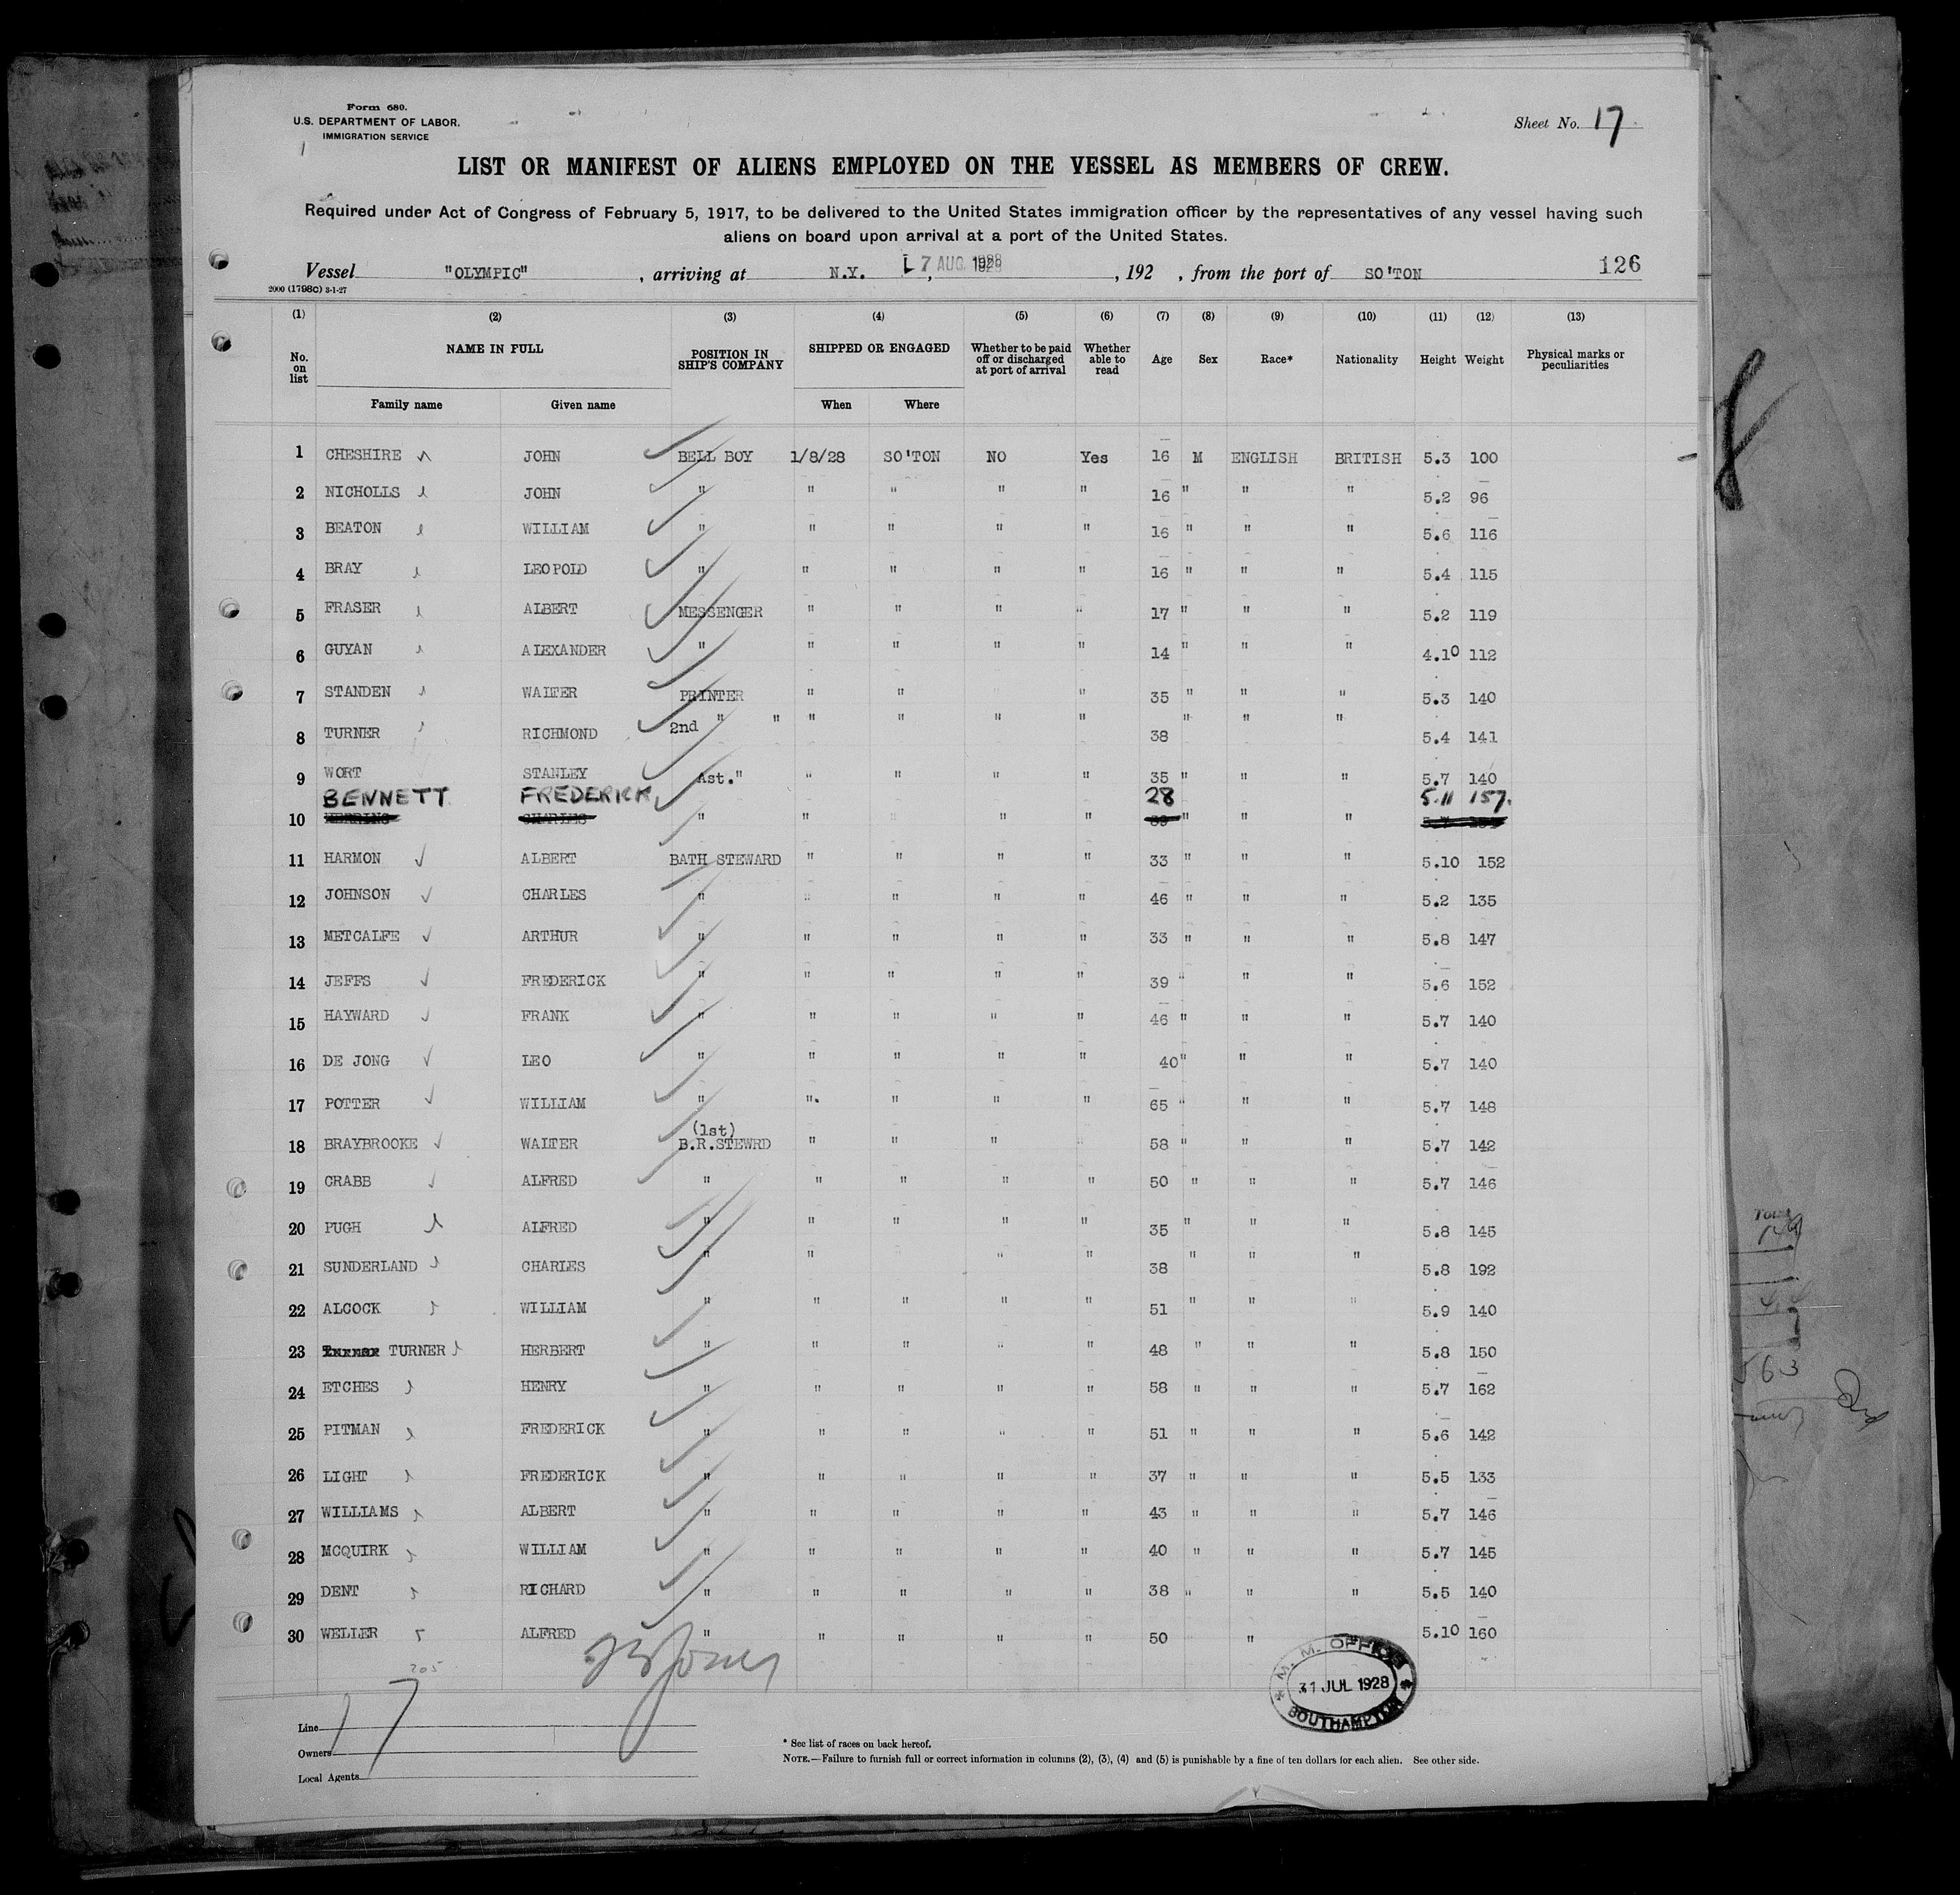 Form 680.
U.S. DEPARTMENT OF LABOR.
IMMIGRATION SERVICE
Sheet No. 17
LIST OR MANIFEST OF ALIENS EMPLOYED ON THE VESSEL AS MEMBERS OF CREW.
Required under Act of Congress of February 5, 1917, to be delivered to the United States immigration officer by the representatives of any vessel having such
aliens on board upon arrival at a port of the United States.
Vessel "OLYMPIC", arriving at N.Y. 7 AUG 1928, 192 , from the port of SO'TON 126
2000 (1798c) 3-1-27
(1) (2) (3) (4) (5) (6) (7) (8) (9) (10) (11) (12) (13)
No. on list NAME IN FULL POSITION IN SHIP'S COMPANY SHIPPED OR ENGAGED Whether to be paid off or discharged at port of arrival Whether able to read Age Sex Race* Nationality Height Weight Physical marks or peculiarities
Family name Given name When Where
1 CHESHIRE JOHN BELL BOY 1/8/28 SO'TON NO Yes 16 M ENGLISH BRITISH 5.3 100
2 NICHOLLS JOHN " " " " " 16 " " " 5.2 96
3 BEATON WILLIAM " " " " " 16 " " " 5.6 116
4 BRAY LEOPOLD " " " " " 16 " " " 5.4 115
5 FRASER ALBERT MESSENGER " " " " 17 " " " 5.2 119
6 GUYAN ALEXANDER " " " " " 14 " " " 4.10 112
7 STANDEN WALTER PRINTER " " " " 35 " " " 5.3 140
8 TURNER RICHMOND 2nd " " " " " " 38 " " " 5.4 141
9 WORT STANLEY Ast." " " " " 35 " " " 5.7 140
BENNETT FREDERICK 28 5.11 157.
10 " " " " " " " " "
11 HARMON ALBERT BATH STEWARD " " " " 33 " " " 5.10 152
12 JOHNSON CHARLES " " " " " 46 " " " 5.2 135
13 METCALFE ARTHUR " " " " " 33 " " " 5.8 147
14 JEFFS FREDERICK " " " " " 39 " " " 5.6 152
15 HAYWARD FRANK " " " " " 46 " " " 5.7 140
16 DE JONG LEO " " " " " 40 " " " 5.7 140
17 POTTER WILLIAM " ". " " " 65 " " " 5.7 148
(1st)
18 BRAYBROOKE WALTER B.R.STEWRD " " " " 58 " " " 5.7 142
19 CRABB ALFRED " " " " " 50 " " " 5.7 146
20 PUGH ALFRED " " " " " 35 " " " 5.8 145
21 SUNDERLAND CHARLES " " " " 38 " " " 5.8 192
22 ALCOCK WILLIAM " " " " " 51 " " " 5.9 140
23 TURNER HERBERT " " " " " 48 " " " 5.8 150
24 ETCHES HENRY " " " " " 58 " " " 5.7 162
25 PITMAN FREDERICK " " " " " 51 " " " 5.6 142
26 LIGHT FREDERICK " " " " " 37 " " " 5.5 133
27 WILLIAMS ALBERT " " " " " 43 " " " 5.7 146
28 MCQUIRK WILLIAM " " " " " 40 " " " 5.7 145
29 DENT RICHARD " " " " " 38 " " " 5.5 140
30 WELLER ALFRED " " " " " 50 " 5.10 160
205
17
M. M. OFFICE
31 JUL 1928
SOUTHAMPTON
Line
Owners
Local Agents
* See list of races on back hereof.
NOTE.—Failure to furnish full or correct information in columns (2), (3), (4) and (5) is punishable by a fine of ten dollars for each alien. See other side.